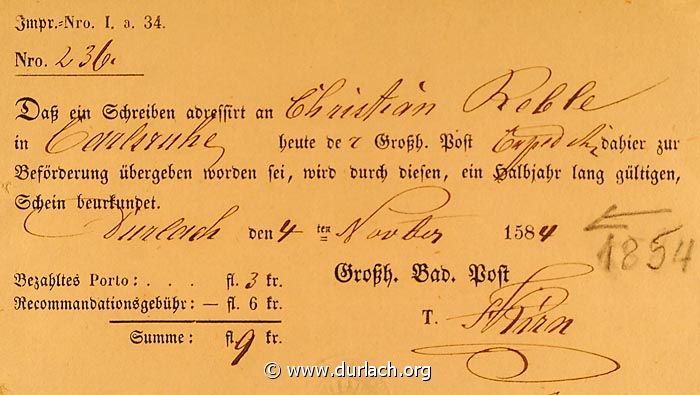 Impr.=Nro. I. a. 34.
Nro. 236.
Daß ein Schreiben adressirt an Christian Reble
in Carlsruhe heute der Großh. Post Exped dahier zur
Beförderung übergeben worden sei, wird durch diesen, ein Halbjahr lang gültigen,
Schein beurkundet.
Durlach den 4 ten Novber 1584 1854
Bezahltes Porto: . . . fl. 3 kr.
Recommandationsgebühr: — fl. 6 kr.
Summe: fl. 9 kr.
Großh. Bad. Post
T.
© www.durlach.org